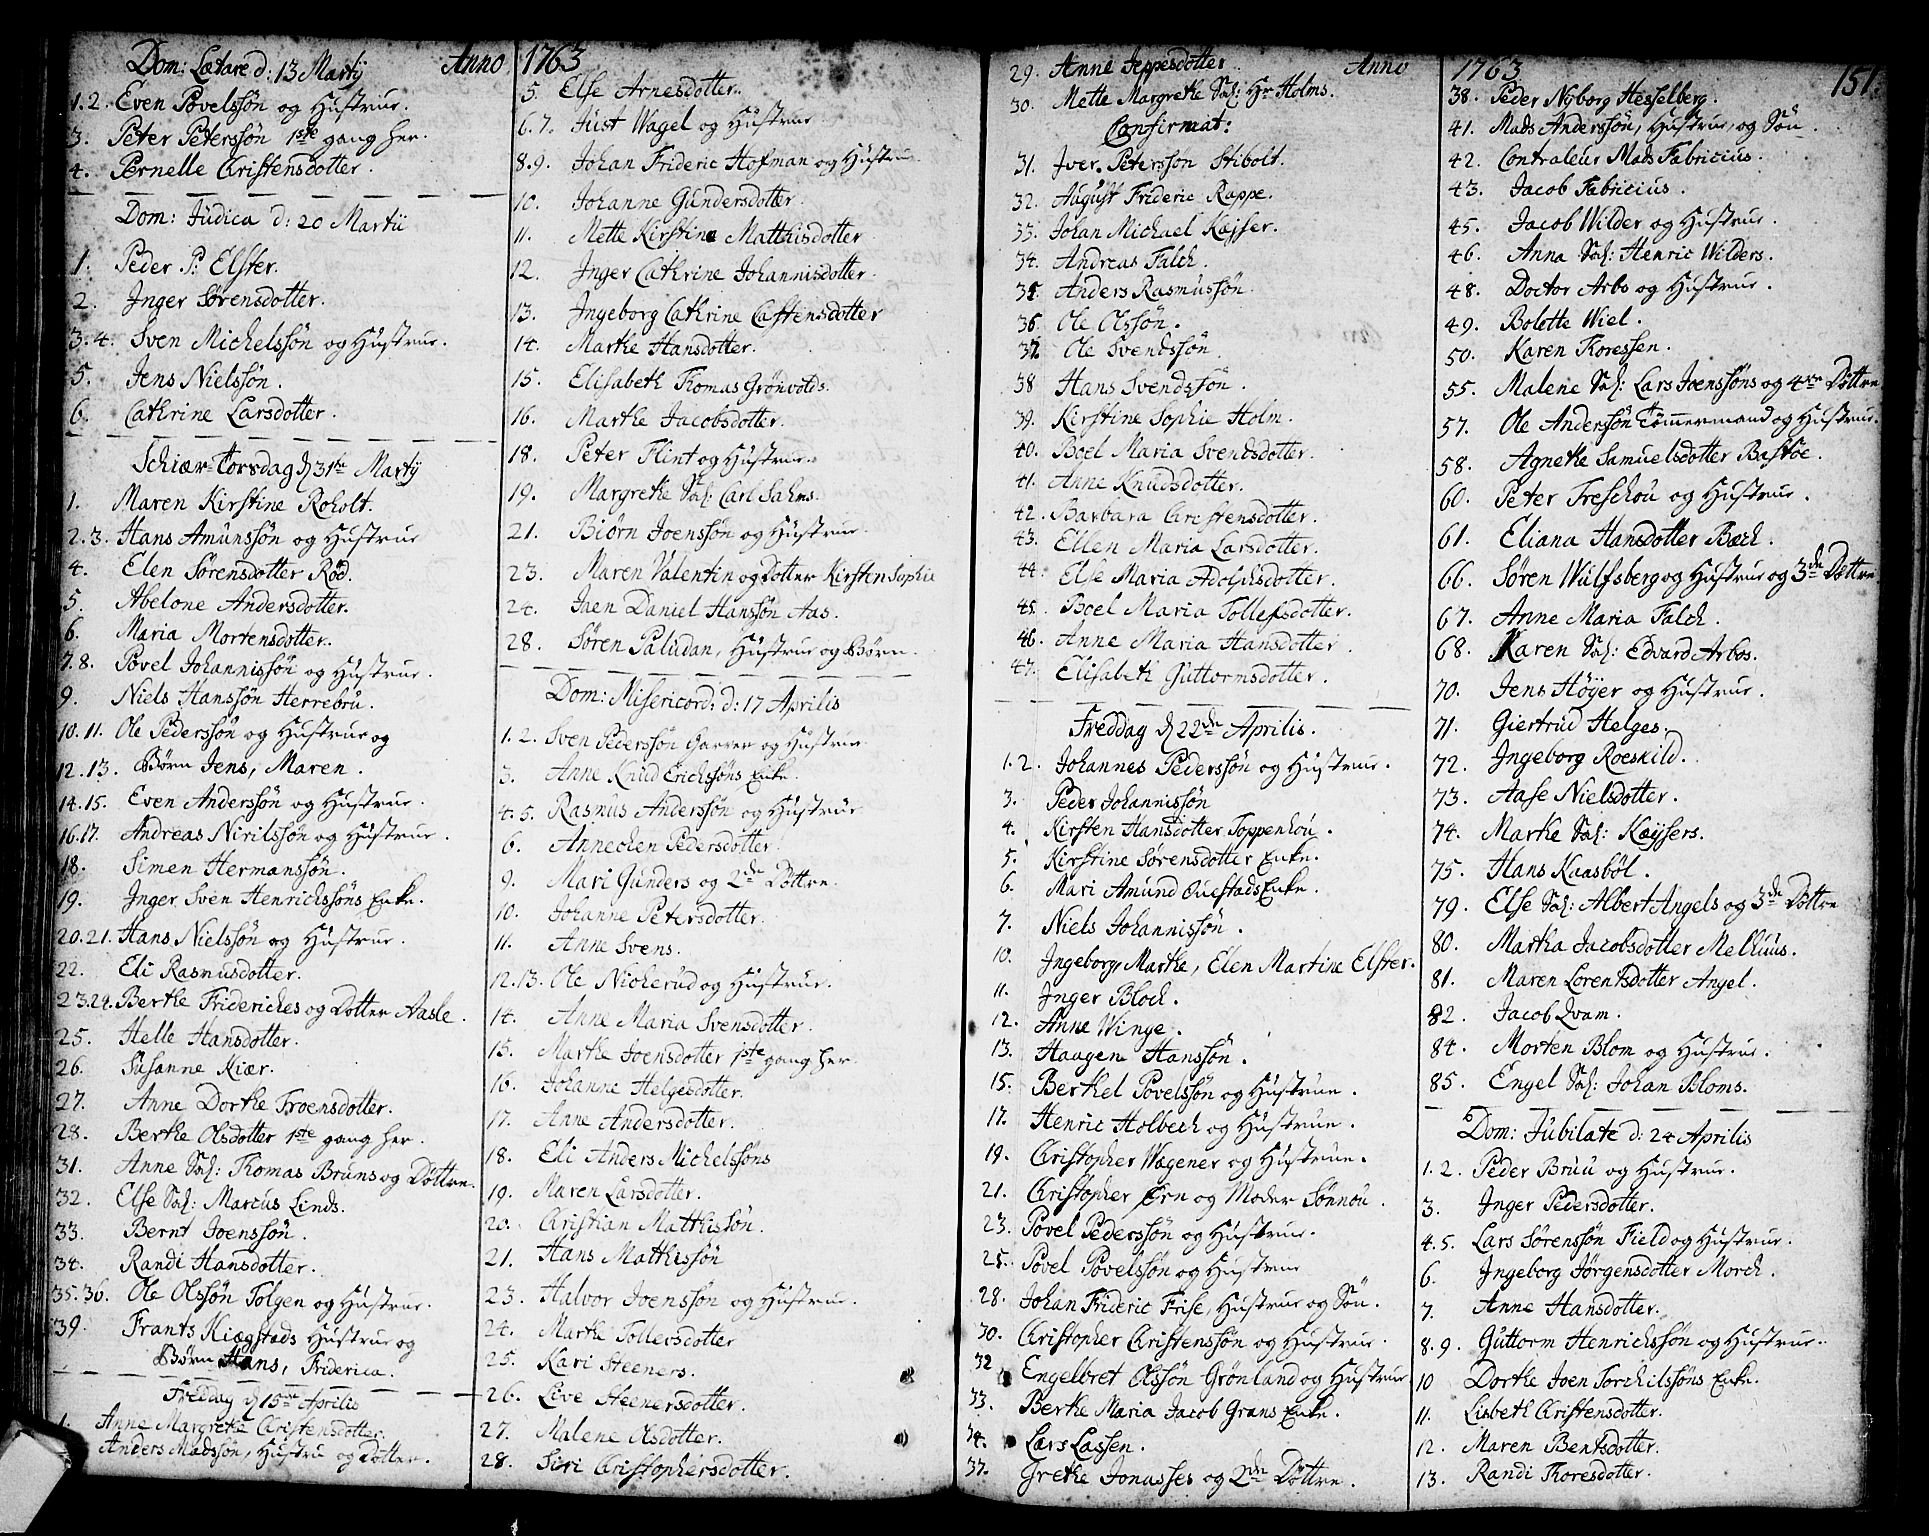 Dom: Lætare d: 13 Martij Anno
1. 2. Even Povelssøn og Hustrue.
3. Peter Peterssøn 1ste gang her.
4. Pernelle Christensdotter.
Dom: Judica d: 20 Martii
1. Peder P: Elster.
2. Inger Sørensdotter.
3. 4. Sven Michelssøn og Hustrue.
5. Jens Nielssøn.
6. Cathrine Larsdotter.
Schiær-Torsdag d 31te Martij
1. Maren Kirstine Roholt.
2. 3. Hans Amunssøn og Hustrue
4. Elen Sørensdotter Rød.
5. Abelone Andersdotter.
6. Maria Mortensdotter.
7. 8. Povel Johannissøn og Hustrue.
9. Niels Hanssøn Herrebru.
10. 11. Ole Pederssøn og Hustrue og
12. 13. Børn Jens, Maren.
14. 15. Even Anderssøn og Hustrue.
16. 17. Andreas Nirilssøn og Hustrue.
18. Simen Hermanssøn.
19. Inger Sven Henrichssøns Enke.
20. 21. Hans Nielssøn og Hustrue.
22. Eli Rasmusdotter.
23. 24. Berthe Friderichs og Dotter Aasle.
25. Helle Hansdotter.
26. Susanne Kiær.
27. Anne Dorthe Froensdotter.
28. Berthe Olsdotter 1ste gang her.
31. Anne Sal: Thomas Bruns og Døttre.
32. Else Sal: Marcus Linds.
33. Bernt Joenssøn.
34. Randi Hansdotter.
35. 36. Ole Olssøn Tolgen og Hustrue.
39. Frants Kiægstads Hustrue og
Børn Hans, Friderica.
Freddag d 15de Aprilis
1. Anne Margrethe Christensdotter.
Anders Madssøn, Hustru og Dotter.
1763
5. Else Arnesdotter.
6. 7. Just Wagel og Hustrue
8. 9. Johan Frideric Hofman og Hustrue
10. Johanne Gundersdotter.
11. Mette Kirstine Matthisdotter
12. Inger Cathrine Johannisdotter.
13. Ingeborg Cathrine Castensdotter
14. Marthe Hansdotter.
15. Elisabeth Thomas Grønvolds.
16. Marthe Jacobsdotter.
18. Peter Flint og Hustrue.
19. Margrethe Sal: Carl Sahms.
21. Biørn Joenssøn og Hustrue.
23. Maren Valentin og Dotter Kirsten Sophie
24. Jaen Daniel Hanssøn Aas.
28. Søren Paludan, Hustrue og Børn.
Dom: Misericord: d: 17 Aprilis
1. 2. Sven Pederssøn Garver og Hustrue
3. Anne Knud Erichssøns Enke.
4. 5. Rasmus Anderssøn og Hustrue
6. Annechen Pedersdotter.
9. Mari Gunders og 2de Døttre.
10. Johanne Petersdotter.
11. Anne Svens.
12. 13. Ole Nickerud og Hustrue.
14. Anne Maria Svensdotter.
15. Marthe Joensdotter 1ste gang her.
16. Johanne Helgesdotter.
17. Anne Andersdotter.
18. Eli Anders Michelssøns
19. Maren Larsdotter.
20. Christian Matthissøn.
21. Hans Mathissøn
23. Halvor Joenssøn og Hustrue.
24. Marthe Tollevsdotter
25. Kari Steeners.
26. Live Steenersdotter.
27. Malene Olsdotter.
28. Siri Christophersdotter.
29. Anne Jeppesdotter Anno
30. Mette Margrethe Sal: Hr Holms.
Confirmat:
31. Iver Peterssøn Stibolt.
32. August Frideric Rappe.
33. Johan Michael Kajser.
34. Andreas Falch.
35. Anders Rasmussøn.
36. Ole Olssøn.
37. Ole Svendssøn.
38 Hans Svendssøn.
39. Kirstine Sophie Holm.
40. Boel Maria Svendsdotter.
41. Anne Knudsdotter.
42. Barbara Christensdotter.
43. Ellen Maria Larsdotter.
44. Else Maria Adolphsdotter.
45. Boel Maria Tollefsdotter.
46. Anne Maria Hansdotter.
47. Elisabeth Guttormsdotter.
Freddag d 22de Aprilis.
1. 2. Johannes Pederssøn og Hustrue.
3. Peder Johannissøn
4. Kirsten Hansdotter Toppenhou.
5. Kirstine Sørensdotter Enke.
6. Mari Amund Ouestads Enke.
7. Niels Johannissøn.
10. Ingeborg, Marthe, Elen Martine Elster.
11. Inger Bloch.
12. Anne Winge.
13. Haagen Hanssøn.
15. Berthel Povelssøn og Hustrue.
17. Henric Holbech og Hustrue.
19. Christopher Wagener og Hustrue.
21. Christopher Ern og Moder Sønnou.
23. Povel Pederssøn og Hustrue.
25. Povel Povelssøn og Hustrue
28. Johan Frideric Frise, Hustrue og Søn.
30. Christopher Christenssøn og Hustrue.
32 Engelbret Olssøn Grønland og Hustrue
33. Berthe Maria Jacob Grans Enke.
34. Lars Lassen.
37. Grethe Jonasses og 2de Døttre.
1763 151.
38. Peder Nyborg Hesselberg.
41. Mads Anderssøn, Hustrue, og Søn.
42. Contraleur Mads Fabricius.
43. Jacob Fabricius.
45. Jacob Wilder og Hustrue.
46. Anna Sal: Henric Wilders.
48. Doctor Arbo og Hustrue.
49. Bolette Wiel.
50. Karen Thoressen.
55. Malene Sal: Lars Joenssøns og 4re Døttre
57. Ole Anderssøn Tømmermand og Hustrue.
58. Agnethe Samuelsdotter Bastøe.
60. Peter Treschou og Hustrue.
61. Eliana Hansdotter Bæch.
66. Søren Wulfsberg og Hustrue og 3de Døttre
67. Anne Maria Falch.
68. Karen Sal: Edvard Arbos.
70. Jens Høyer og Hustrue.
71. Giertrud Helges.
72. Ingeborg Roeskild.
73. Aase Nielsdotter.
74. Marthe Sal: Kaysers.
75. Hans Kaasbøl.
79. Else Sal: Albert Angels og 3de Døttre
80. Martha Jacobsdotter Melhuus.
81. Maren Lorentsdotter Angel.
82. Jacob Qvam.
84. Morten Blom og Hustrue.
85. Engel Sal: Johan Bloms.
Dom: Jubilate d: 24 Aprilis
1. 2. Peder Bruu og Hustrue.
3. Inger Pedersdotter.
4. 5. Lars Sørenssøn Field og Hustrue.
6. Ingeborg Jørgensdotter Morch.
7. Anne Hansdotter.
8. 9. Guttorm Henrichssøn og Hustrue.
10 Dorthe Joen Torchilssøns Enke.
11. Lisbeth Christensdotter.
12. Maren Bentsdotter.
13. Randi Thoresdotter.